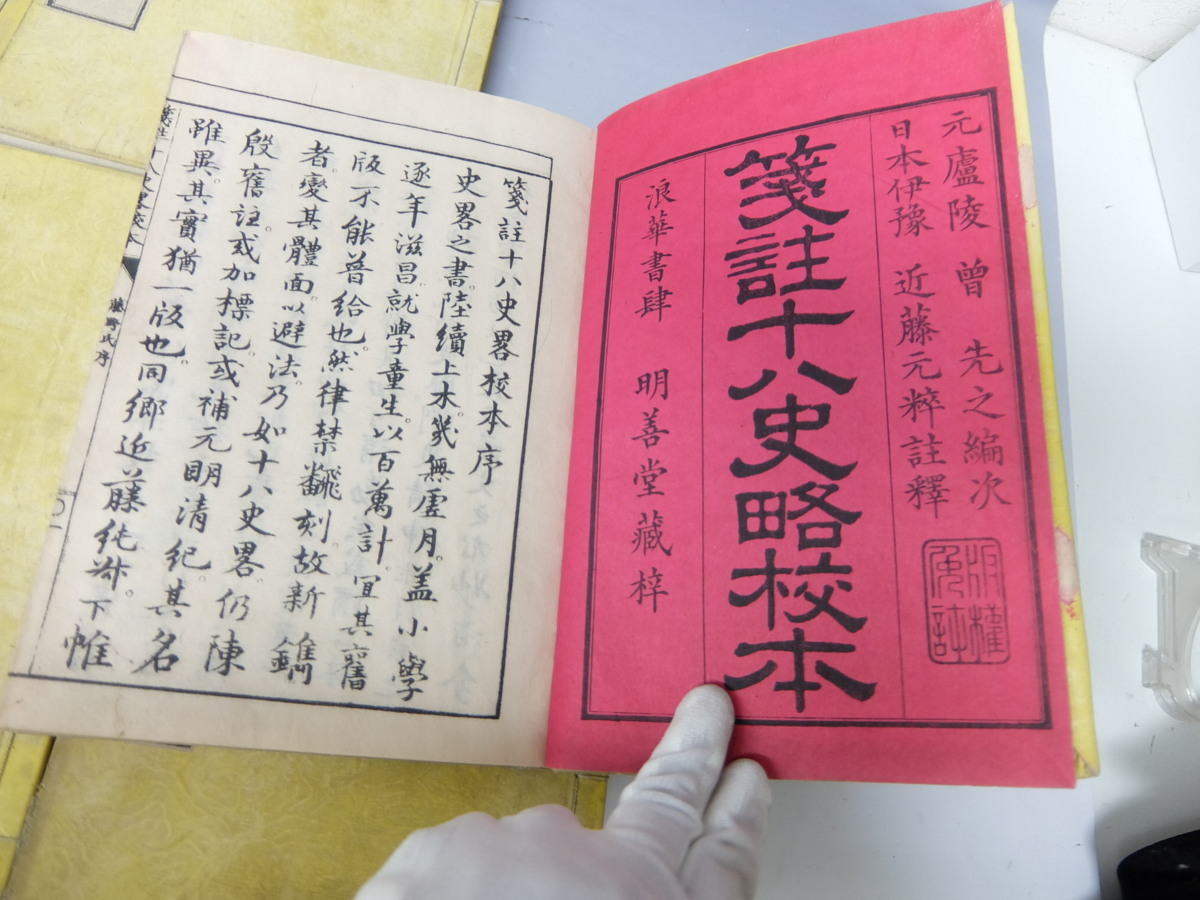 元廬陵 曾 先之編次
日本伊豫 近藤元粹註釋
版權免許
箋註十八史略校本
浪華書肆 明善堂藏梓
箋註十八史畧校本序
史畧之書。陸續上木。幾無虛月。盖小學
逐年滋昌。就學童生。以百萬計。宜其舊
版不能普給也。然律禁飜刻。故新鐫
者。變其體面。以避法。乃如十八史畧。仍陳
殷舊註。或加標記。或補元明清紀。其名
雖異。其實猶一版也。同鄉近藤純叔。下帷
箋註十八史畧校本
藤野氏序